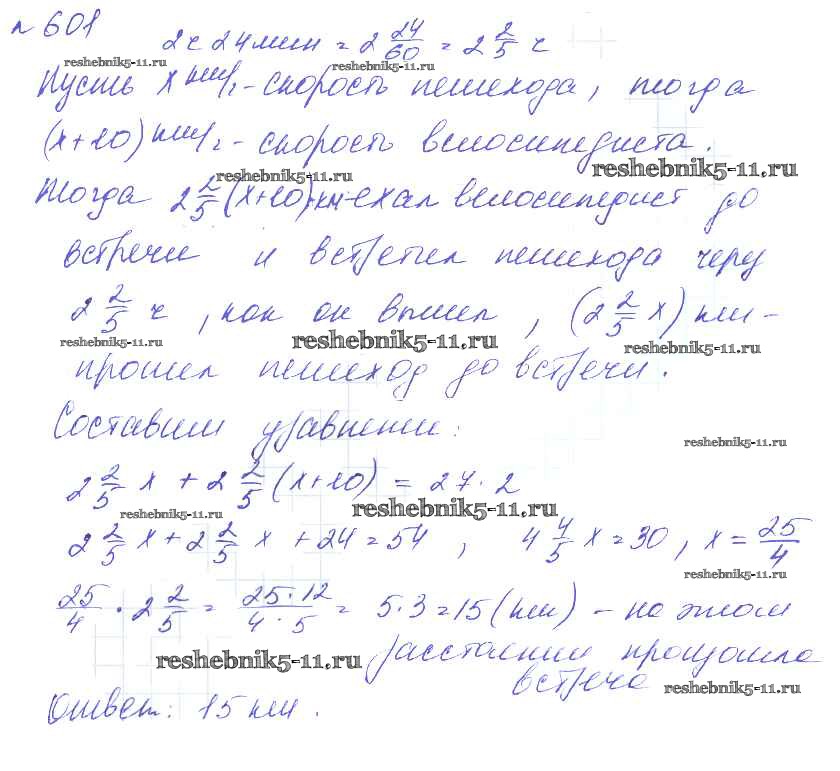 № 601
2 ч 24 мин = 2 24/60 = 2 2/5 ч
reshebnik5-11.ru reshebnik5-11.ru
Пусть x км/ч - скорость пешехода, тогда
(x+10) км/ч - скорость велосипедиста.
reshebnik5-11.ru reshebnik5-11.ru
Тогда 2 2/5 (x+10) км - ехал велосипедист до
встречи и встретил пешехода через
2 2/5 ч, как он вышел, (2 2/5 x) км -
reshebnik5-11.ru reshebnik5-11.ru reshebnik5-11.ru
прошел пешеход до встречи.
Составим уравнение:
reshebnik5-11.ru
2 2/5 x + 2 2/5 (x+10) = 27 · 2
reshebnik5-11.ru reshebnik5-11.ru
2 2/5 x + 2 2/5 x + 24 = 54, 4 4/5 x = 30, x = 25/4
reshebnik5-11.ru
25/4 · 2 2/5 = 25·12/4·5 = 5·3 = 15 (км) - на этом
расстоянии произошла
reshebnik5-11.ru
встреча
reshebnik5-11.ru
Ответ: 15 км.